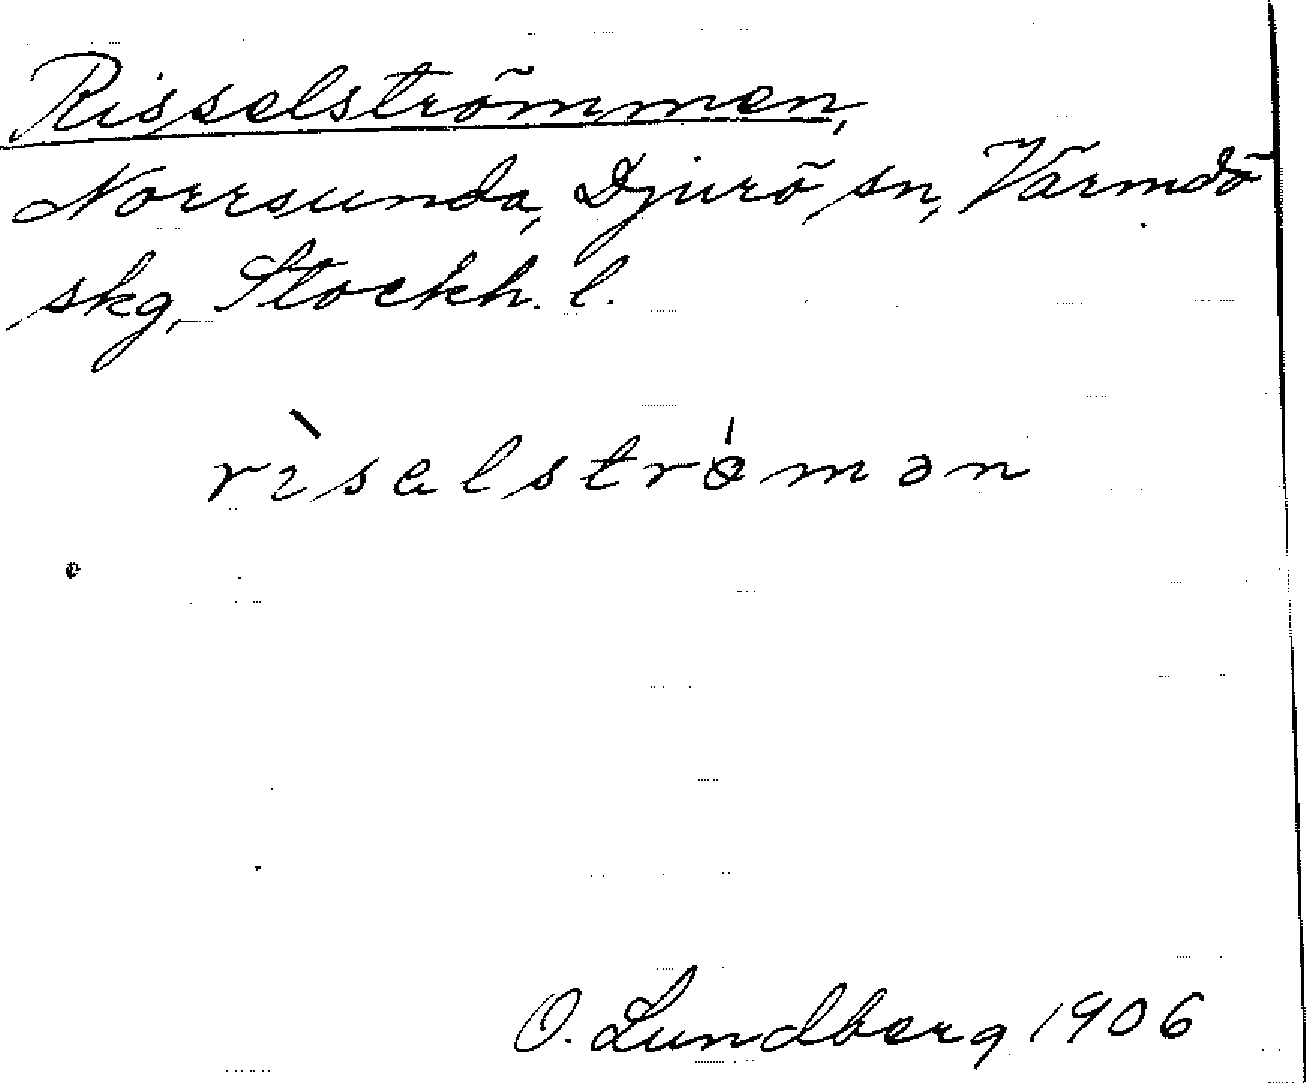 Risselströmmen,
Norrsunda, Djurö sn, Värmdö
skg, Stockh. l.
rìsəlstrǿmən
O. Lundberg 1906